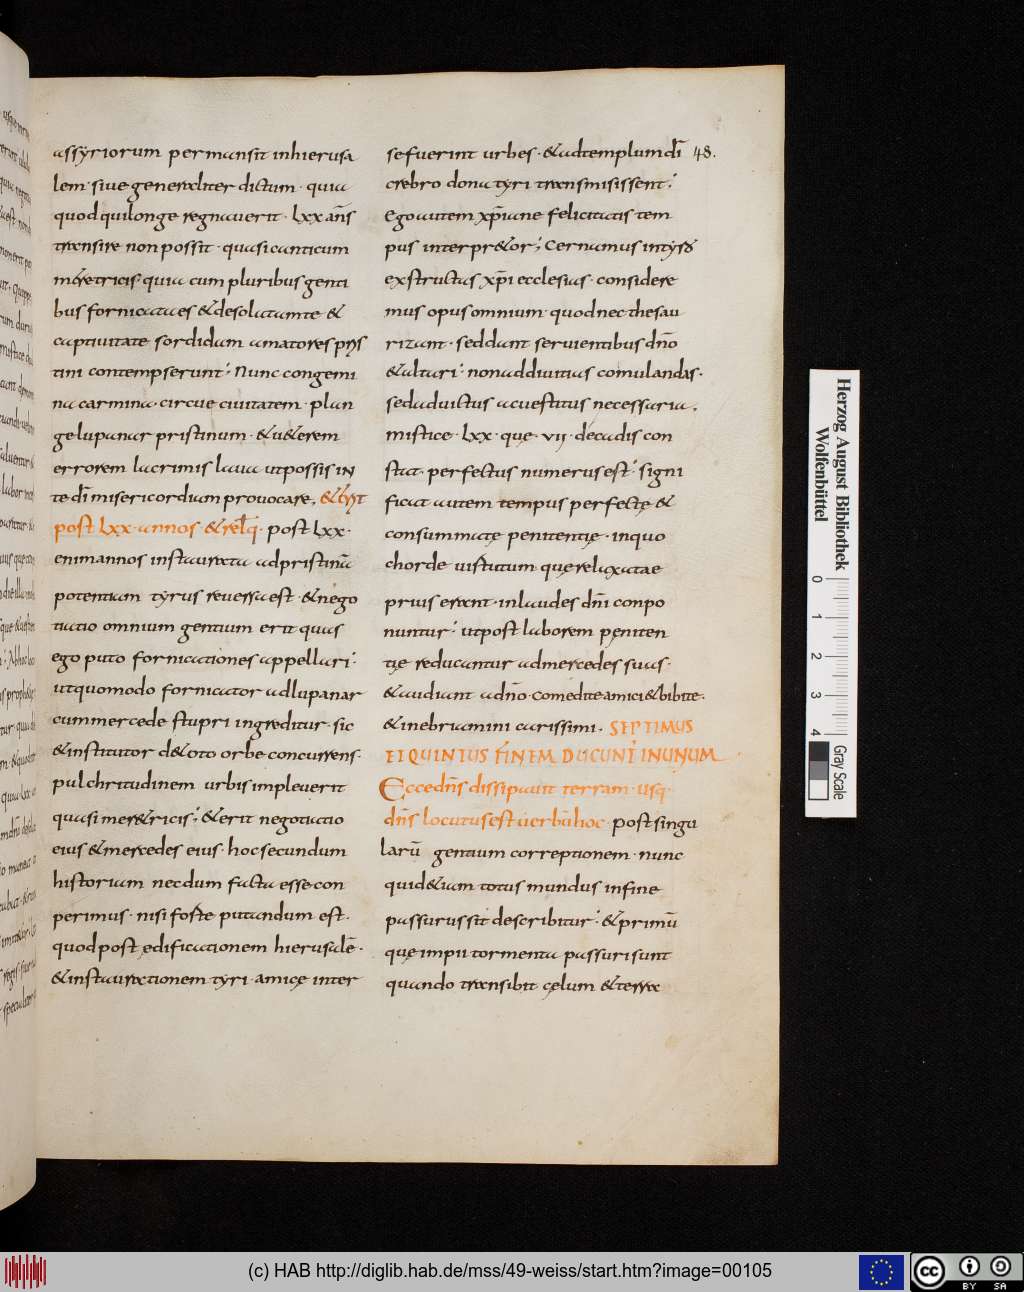 assyriorum permansit inhierusa
lem· siue generaliter dictum· quia
quod qui longe regnauerit· lxx añs
transire non possit· quasi canticum
meretricis· quia cum pluribus genti
bus fornicata es & desolatam te &
captiuitate sordidam amatores pris
tini contempserunt; Nunc congemi
na carmina· circue ciuitatem· plan
ge lupanar pristinum· & u&erem
errorem lacrimis laua ut possis in
te dī misericordiam prouocare, & erit
post lxx· annos & relq̄· post lxx·
enim annos instaurata ad pristinā
potentiam tyrus reuersa est· & nego
tiatio omnium gentium erit quas
ego puto fornicationes appellari·
ut quomodo fornicator ad lupanar
cum mercede stupri ingreditur· sic
& institutor d& oto orbe concurrens·
pulchritudinem urbis impleuerit
quasi mer&ricis; & erit negotiatio
eius & mercedes eius· hoc secundum
historiam necdum facta esse con
perimus· nisi forte putandum est·
quod post ędificationem hierusalē·
& instaurationem tyri· amicę inter
se fuerint urbes· & ad templum dī
crebro dona tyri transmisissent;
ego autem xp̄iane felicitatis tem
pus interpr&or; Cernamus in tyro
exstructas xp̄i ecclesias· considere
mus opus omnium· quod nec thesau
rizant· sed dant seruientibus dn̄o
& altari· non ad diuitias comulandas·
sed ad uictus ac uestitus necessaria,
mistice· lxx· que· vij· decadis con
stat· perfectus numerus est; signi
ficat autem tempus perfectę &
consummatę penitentię· in quo
chorde uirtutum que relaxatae
prius erant· in laudes dn̄i conpo
nuntur; ut post laborem peniten
tię reducantur ad mercedes suas·
& audiant a dn̄o· comedite amici & bibite·
& inebriamini carissimi. SEPTIMUS
ET QUINTUS FINEM DUCUNT IN UNUM
Ecce dn̄s dissipauit terram· usq·
dn̄s locutus est uerbū hoc· post singu
larū gentium correptionem· nunc
quid&iam totus mundus in fine
passurus sit describitur; & primū
quę impii tormenta passuri sunt
quando transibit cęlum & terra
48.
Herzog August Bibliothek
Wolfenbüttel
0 1 2 3 4
Gray Scale
(c) HAB http://diglib.hab.de/mss/49-weiss/start.htm?image=00105
cc BY SA